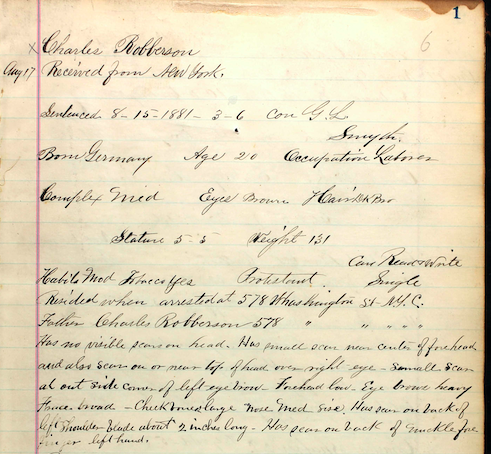 1
6
x Charles Robberson
Aug 17 Received from New York.
Sentenced 8-15-1881- 3-6 con G L
Smyth.
Born Germany Age 20 Occupation Laborer
Complex Med Eyes Brown Hair Dk Bro
Stature 5-5 Weight 131
Can Read & Write
Habits Mod Tobacco Yes Protestant Single
Resided when arrested at 578 Washington St - N.Y.C.
Father Charles Robberson 578 " " " " "
Has no visible scars on head. Has small scar near center of forehead
and also scar on or near top of head over right eye - small scar
at out side corner of left eye brow Forehead low - Eye brows heavy
broad - Cheek bones large nose Med size. Has scar on back of
left shoulder blade about 2 inches long - Has scar on back of knuckle fore
finger left hand.